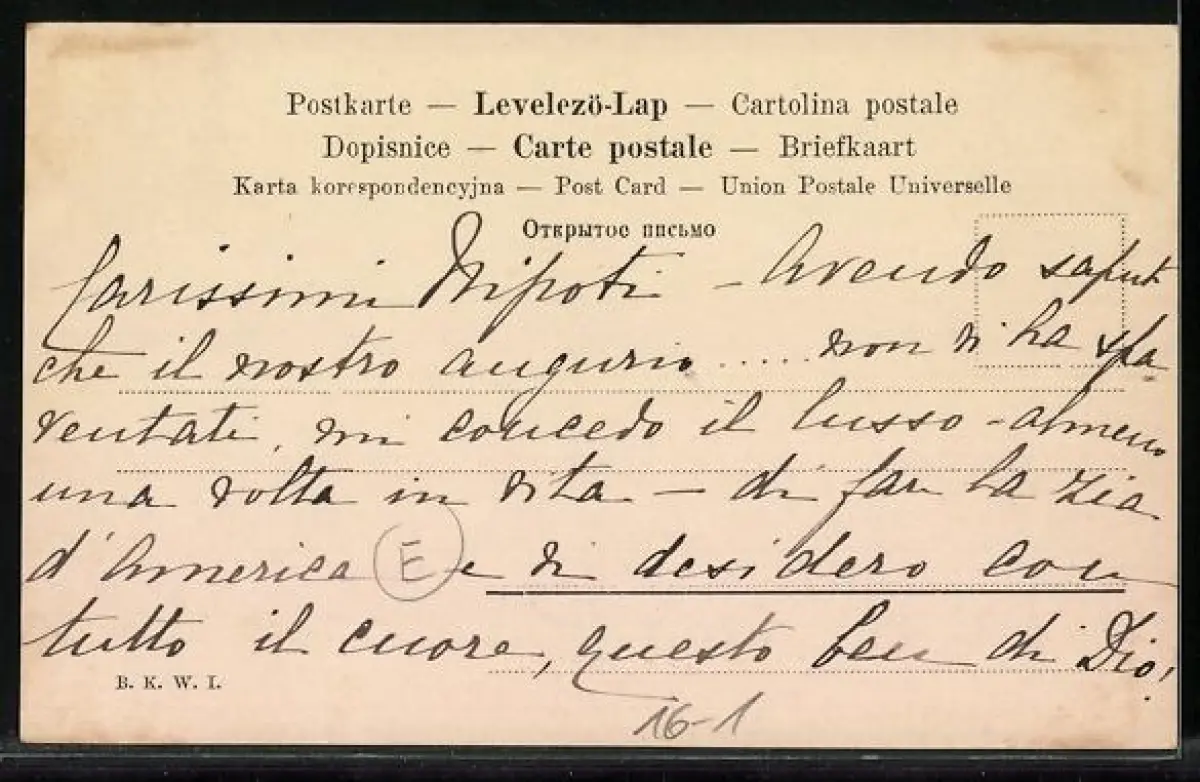 Postkarte — Levelező-Lap — Cartolina postale
Dopisnice — Carte postale — Briefkaart
Karta korespondencyjna — Post Card — Union Postale Universelle
Открытое письмо
Carissimi Nipoti - Avendo saput
che il nostro augurio ..... non vi ha spa
ventati, mi concedo il lusso - almeno
una volta in vita - di far la zia
d'America e vi desidero con
E
tutto il cuore, questo ben di Dio!
B. K. W. I.
16-1